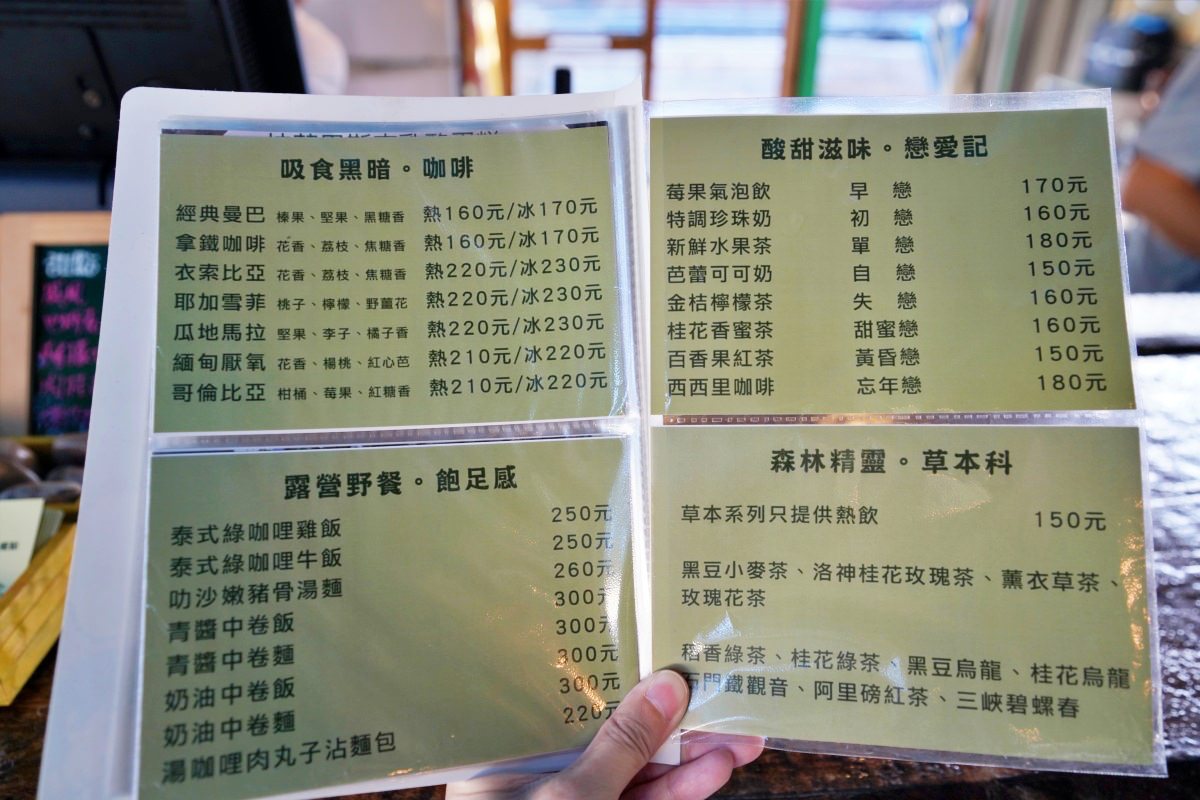 吸食黑暗。咖啡
經典曼巴 榛果、堅果、黑糖香 熱160元/冰170元
拿鐵咖啡 花香、荔枝、焦糖香 熱160元/冰170元
衣索比亞 花香、荔枝、焦糖香 熱220元/冰230元
耶加雪菲 桃子、檸檬、野薑花 熱220元/冰230元
瓜地馬拉 堅果、李子、橘子香 熱220元/冰230元
緬甸厭氧 花香、楊桃、紅心芭 熱210元/冰220元
哥倫比亞 柑桶、莓果、紅糖香 熱210元/冰220元
露營野餐。飽足感
泰式綠咖哩雞飯 250元
泰式綠咖哩牛飯 250元
叻沙嫩豬骨湯麵 260元
青醬中卷飯 300元
青醬中卷麵 300元
奶油中卷飯 300元
奶油中卷麵 300元
湯咖哩肉丸子沾麵包 220元
酸甜滋味。戀愛記
莓果氣泡飲 早戀 170元
特調珍珠奶 初戀 160元
新鮮水果茶 單戀 180元
芭蕾可可奶 自戀 150元
金桔檸檬茶 失戀 160元
桂花香蜜茶 甜蜜戀 160元
百香果紅茶 黃昏戀 150元
西西里咖啡 忘年戀 180元
森林精靈。草本科
草本系列只提供熱飲 150元
黑豆小麥茶、洛神桂花玫瑰茶、薰衣草茶、
玫瑰花茶
稻香綠茶、桂花綠茶、黑豆烏龍、桂花烏龍
石門鐵觀音、阿里磅紅茶、三峽碧螺春